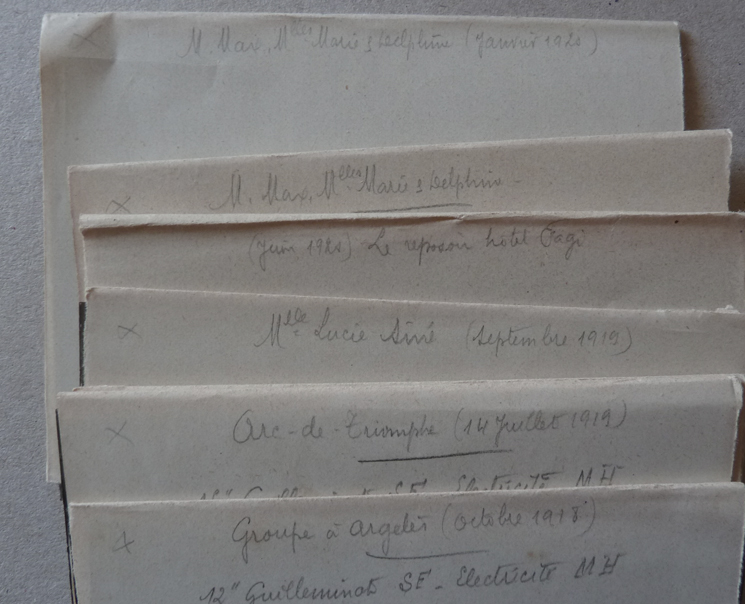 M. Max, Mlles Marie & Delphine (Janvier 1921)
M. Max, Mlles Marie & Delphine
(Juin 1921) Le reposoir hôtel Fagi
Mlle Lucie Siné (Septembre 1919)
Arc-de-Triomphe (14 Juillet 1919)
12" Guilleminot SE - Electricité MH
Groupe à Argelès (Octobre 1918)
12" Guilleminot SE - Electricité MH